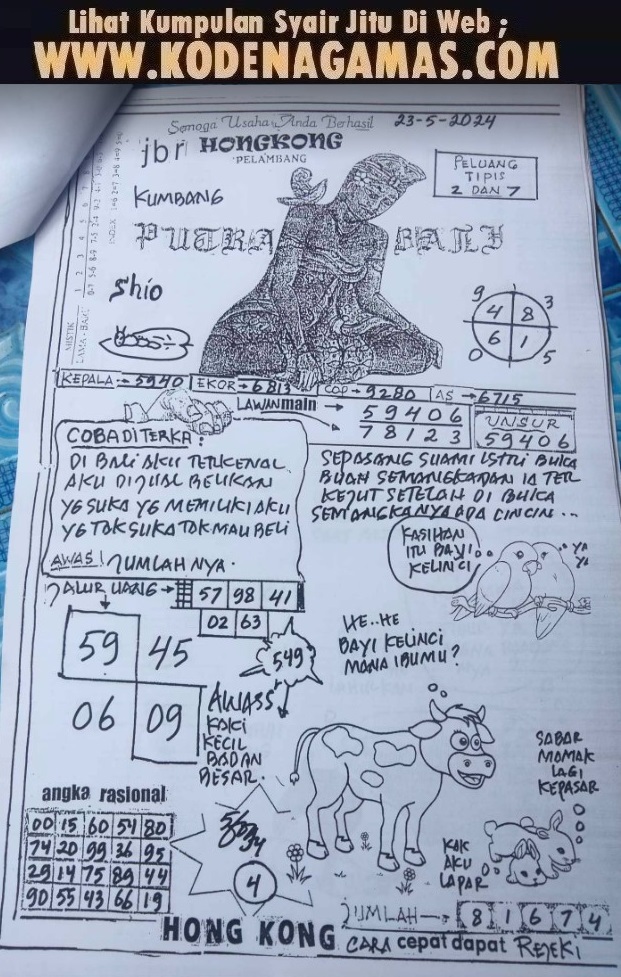 Lihat Kumpulan Syair Jitu Di Web ;
WWW.KODENAGAMAS.COM
Semoga Usaha Anda Berhasil
23-5-2024
jbr HONGKONG
PELAMBANG
PELUANG
TIPIS
2 DAN 7
KUMBANG
PUTRA BALI
Shio
9 3
4 8
6 1
0 5
KEPALA → 5940 EKOR → 6813 COP → 9280 AS → 6715
LAWAN main → 59406
78123
UNSUR
59406
COBA DI TERKA :
DI BALI AKU TERKENAL
AKU DIJUAL BELIKAN
YG SUKA YG MEMILIKI AKU
YG TAK SUKA TAK MAU BELI
AWAS! JUMLAH NYA.
SEPASANG SUAMI ISTRI BUKA
BUAH SEMANGKA DAN IA TER
KEJUT SETELAH DI BUKA
SEMANGKANYA ADA CINCIN...
KASIHAN
ITU BAYI
KELINCI
YA
YA
JALUR UANG → 57 98 41
02 63
549
59 45
06 09
HE..HE
BAYI KELINCI
MANA IBUMU?
AWASS
KAKI
KECIL
BADAN
BESAR.
SABAR
MAMAK
LAGI
KEPASAR
angka rasional
00 15 60 54 80
74 20 99 36 95
29 14 75 89 44
90 55 43 66 19
4
KAK
AKU
LAPAR
JUMLAH → 8 1 6 7 4
HONG KONG CARA cepat dapat REJEKI